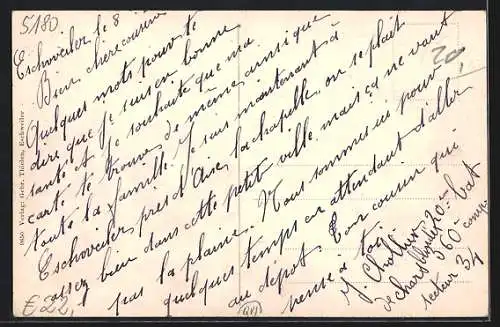 5180
Eschweiler le 8
Bien chère cousine
Quelques mots pour te
dire que je suis en bonne
santé et je souhaite que ma
carte te trouve de même ainsi que
toute la famille. Je suis maintenant à
Eschweiler près d'Aix la chapelle. on se plait
assez bien dans cette petite ville mais ça ne vaut
pas la plaine. Nous sommes ici pour
quelques temps en attendant d'aller
au dépot. Ton cousin qui
pense à toi
J. Chollier
20
bat
560 comp.
secteur 34
9850 Verlag: Gebr. Thielen, Eschweiler
20,
£22,